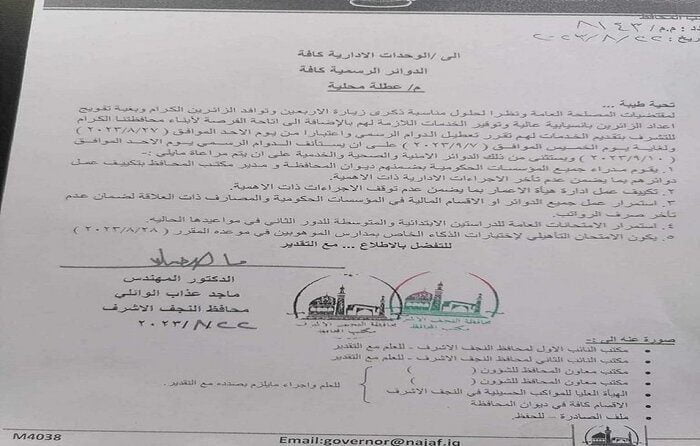 ب المحافظ
دد: م.م/ ٨١٤٣
ريخ: ٢٠٢٣/٨/٢٢
الى /الوحدات الادارية كافة
الدوائر الرسمية كافة
م/ عطلة محلية
تحية طيبة ...
لمقتضيات المصلحة العامة ونظرا لحلول مناسبة ذكرى زيارة الاربعين وتوافد الزائرين الكرام وبغية تفويج
اعداد الزائرين بانسيابية عالية وتوفير الخدمات اللازمة لهم بالإضافة الى اتاحة الفرصة لأبناء محافظتنا الكرام
للتشرف بتقديم الخدمات لهم تقرر تعطيل الدوام الرسمي واعتبارا من يوم الاحد الموافق (٢٠٢٣/٨/٢٧)
ولغاية يوم الخميس الموافق (٢٠٢٣/٩/٧) على ان يستأنف الدوام الرسمي يوم الاحد الموافق
(٢٠٢٣/٩/١٠) ويستثنى من ذلك الدوائر الامنية والصحية والخدمية على ان يتم مراعاة مايلي:-
١. يقوم مدراء جميع المؤسسات الحكومية بضمنهم ديوان المحافظة و مدير مكتب المحافظ بتكييف عمل
دوائرهم بما يضمن عدم تأخر الاجراءات الادارية ذات الاهمية.
٢. تكييف عمل ادارة هيأة الاعمار بما يضمن عدم توقف الاجراءات ذات الاهمية.
٣. استمرار عمل جميع الدوائر او الاقسام المالية في المؤسسات الحكومية والمصارف ذات العلاقة لضمان عدم
تأخر صرف الرواتب.
٤. استمرار الامتحانات العامة للدراستين الابتدائية والمتوسطة للدور الثاني في مواعيدها الحالية.
٥. يكون الامتحان التأهيلي لإختبارات الذكاء الخاص بمدارس الموهوبين في موعده المقرر (٢٠٢٣/٨/٢٨)
للتفضل بالاطلاع ... مع التقدير
الدكتور المهندس
ماجد عذاب الوائلي
محافظ النجف الاشرف
٢٠٢٣/٨/٢٢
محافظة النجف الاشرف
مكتب المحافظ
محافظة النجف الاشرف
مكتب المحافظ
صورة عنه الى :-
• مكتب النائب الاول لمحافظ النجف الاشرف - للعلم مع التقدير
• مكتب النائب الثاني لمحافظ النجف الاشرف - للعلم مع التقدير
• مكتب معاون المحافظ للشؤون ( )
• مكتب معاون المحافظ للشؤون ( )
• الهيأة العليا للمواكب الحسينية في النجف الاشرف
للعلم واجراء مايلزم بصدده مع التقدير.
• الاقسام كافة في ديوان المحافظة
• ملف الصادرة - للحفظ
M4038
Email:governor@najaf.iq